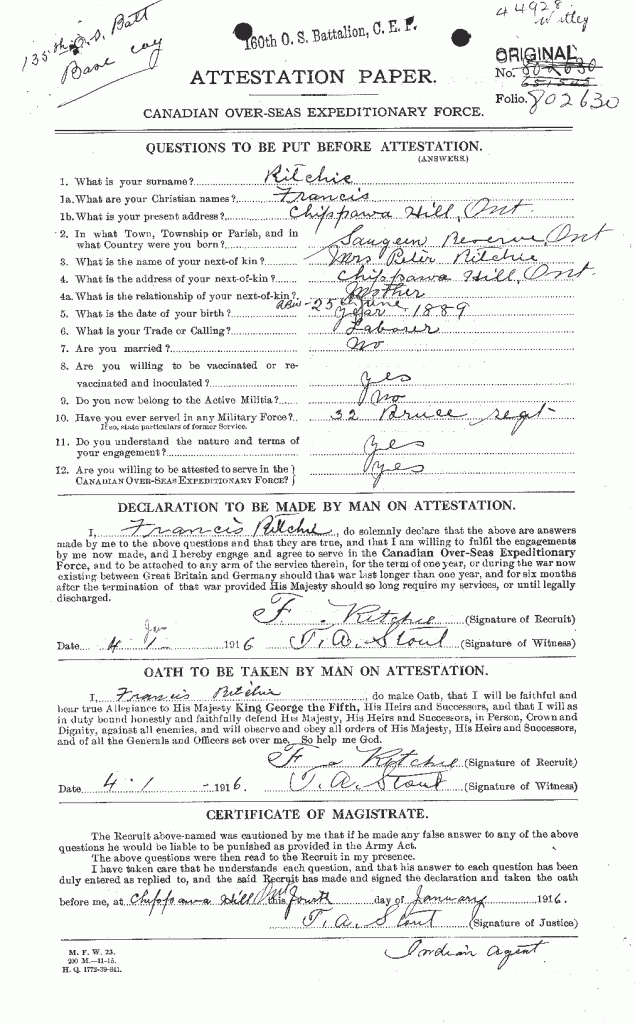 44928
Witley
135th O.S. Batt
Base coy
160th O. S. Battalion, C. E. F.
ORIGINAL
ATTESTATION PAPER.
No. 802630
Folio. 802630
CANADIAN OVER-SEAS EXPEDITIONARY FORCE.
QUESTIONS TO BE PUT BEFORE ATTESTATION.
(ANSWERS.)
1. What is your surname? Ritchie
1a. What are your Christian names? Francis
1b. What is your present address? Chippawa Hill, Ont.
2. In what Town, Township or Parish, and in
what Country were you born? Saugeen Reserve, Ont
3. What is the name of your next-of kin? Mrs Peter Ritchie
4. What is the address of your next-of-kin? Chippawa Hill, Ont.
4a. What is the relationship of your next-of-kin? Mother
5. What is the date of your birth? 25th June year 1889
6. What is your Trade or Calling? Laborer
7. Are you married? No
8. Are you willing to be vaccinated or re-
vaccinated and inoculated? Yes
9. Do you now belong to the Active Militia? No
10. Have you ever served in any Military Force? 32 Bruce regt-
If so, state particulars of former Service.
11. Do you understand the nature and terms of
your engagement? Yes
12. Are you willing to be attested to serve in the
CANADIAN OVER-SEAS EXPEDITIONARY FORCE? Yes
DECLARATION TO BE MADE BY MAN ON ATTESTATION.
I, Francis Ritchie, do solemnly declare that the above are answers
made by me to the above questions and that they are true, and that I am willing to fulfil the engagements
by me now made, and I hereby engage and agree to serve in the Canadian Over-Seas Expeditionary
Force, and to be attached to any arm of the service therein, for the term of one year, or during the war now
existing between Great Britain and Germany should that war last longer than one year, and for six months
after the termination of that war provided His Majesty should so long require my services, or until legally
discharged.
F. Ritchie (Signature of Recruit)
Jan
Date 4 1 1916 T. A. Stout (Signature of Witness)
OATH TO BE TAKEN BY MAN ON ATTESTATION.
I, Francis Ritchie, do make Oath, that I will be faithful and
bear true Allegiance to His Majesty King George the Fifth, His Heirs and Successors, and that I will as
in duty bound honestly and faithfully defend His Majesty, His Heirs and Successors, in Person, Crown and
Dignity, against all enemies, and will observe and obey all orders of His Majesty, His Heirs and Successors,
and of all the Generals and Officers set over me. So help me God.
F Ritchie (Signature of Recruit)
Date 4 . 1 - 1916. T. A. Stout (Signature of Witness)
CERTIFICATE OF MAGISTRATE.
The Recruit above-named was cautioned by me that if he made any false answer to any of the above
questions he would be liable to be punished as provided in the Army Act.
The above questions were then read to the Recruit in my presence.
I have taken care that he understands each question, and that his answer to each question has been
duly entered as replied to, and the said Recruit has made and signed the declaration and taken the oath
before me, at Chippawa Hill Ont this fourth day of January 1916.
T. A. Stout (Signature of Justice)
Indian Agent
M. F. W. 23.
200 M.—11-15.
H. Q. 1772-39-841.